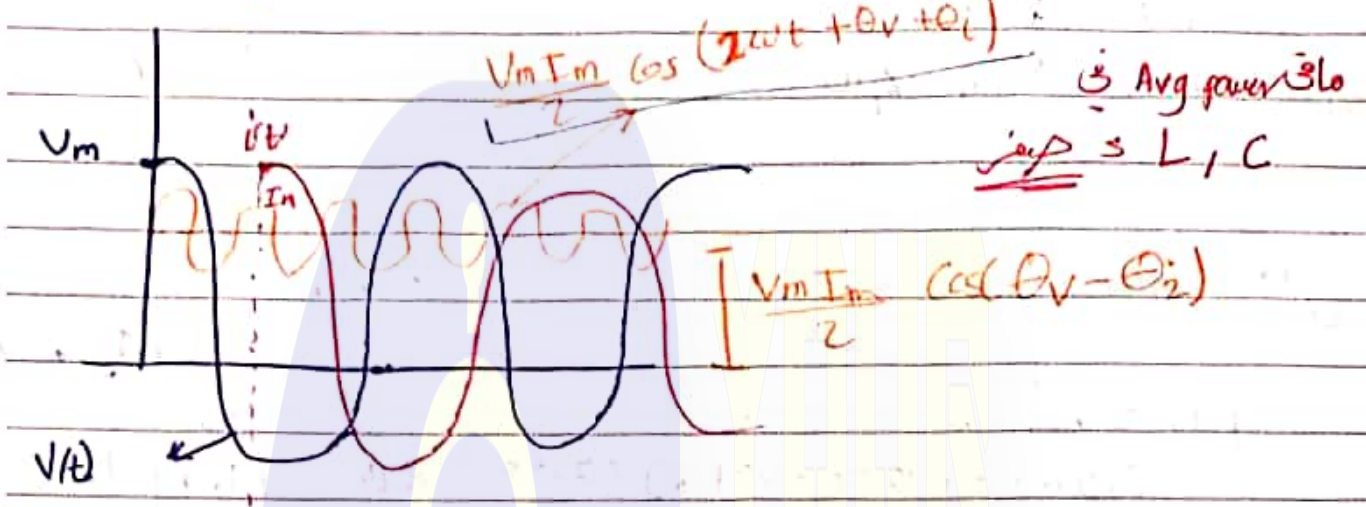 VmIm/2 cos (2ωt + θv + θi)
Avg power
L, C
Vm
i(t)
Im
VmIm/2 cos(θv - θi)
V(t)